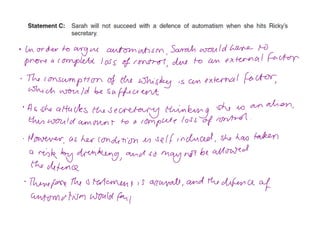 Statement C: Sarah will not succeed with a defence of automatism when she hits Ricky's
secretary.
• In order to argue automatism, Sarah would have to
prove a complete loss of control, due to an external factor
- The consumption of the whisky is an external factor,
which would be sufficient
• As she attacks the secretary thinking she is an alien,
this would amount to a complete loss of control.
- However, as her condition is self induced, she has taken
a risk by drinking, and so may not be allowed
the defence
• Therefore the statement is accurate, and the defence of
automatism would fail